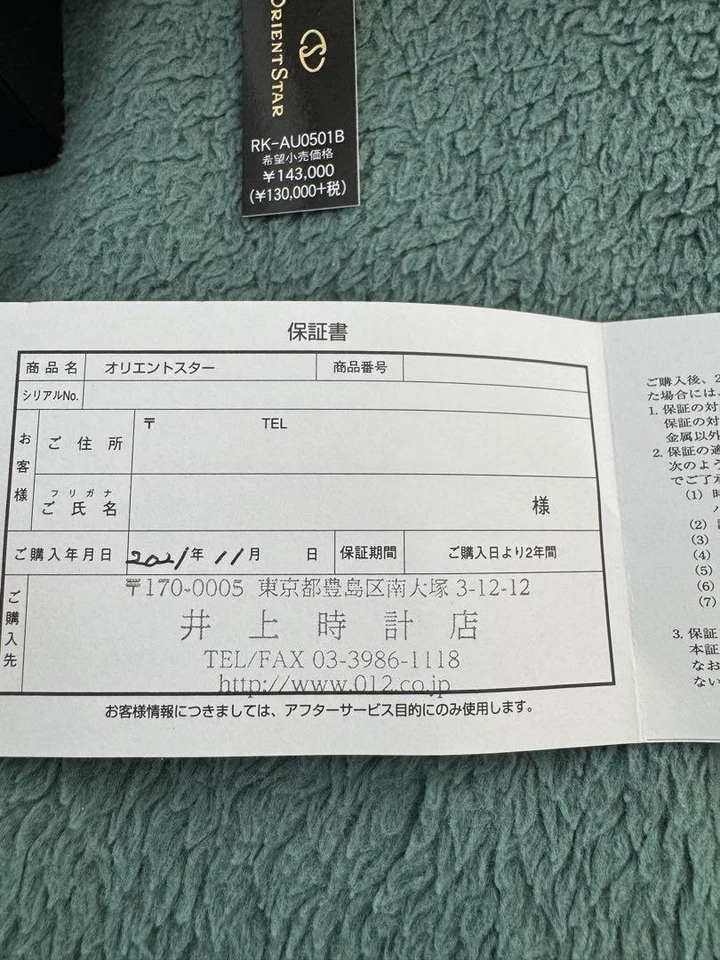 ORIENT STAR
RK-AU0501B
希望小売価格
¥143,000
(¥130,000+税)
保証書
商品名 オリエントスター 商品番号
シリアルNo.
お客様
ご住所 〒 TEL
フリガナ
ご氏名 様
ご購入年月日 2021年 11月 日 保証期間 ご購入日より2年間
ご購入先
〒170-0005 東京都豊島区南大塚 3-12-12
井上時計店
TEL/FAX 03-3986-1118
http://www.012.co.jp
お客様情報につきましては、アフターサービス目的にのみ使用します。
ご購入後、2
た場合には、
1. 保証の対
保証の対
金属以外
2. 保証の適
次のよう
でご了承
(1) 時
(2)
(3)
(4)
(5)
(6)
(7)
3. 保証
本証
なお
ない